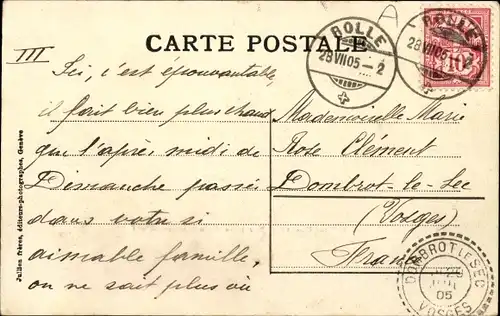 III
CARTE POSTALE
ROLLE
28 VII 05 - 2
ROLLE
28 VII 05 - 2
10
Ici, c'est épouvantable,
il fait bien plus chaud
que l'après midi de
Dimanche passée
dans votre si
aimable famille,
on ne sait plus où
Mademoiselle Marie
Rose Clément
Dombrot-le-Sec
(Vosges)
France
DOMBROT LE SEC
05
VOSGES
Jullien frères, éditeurs-photographes, Genève